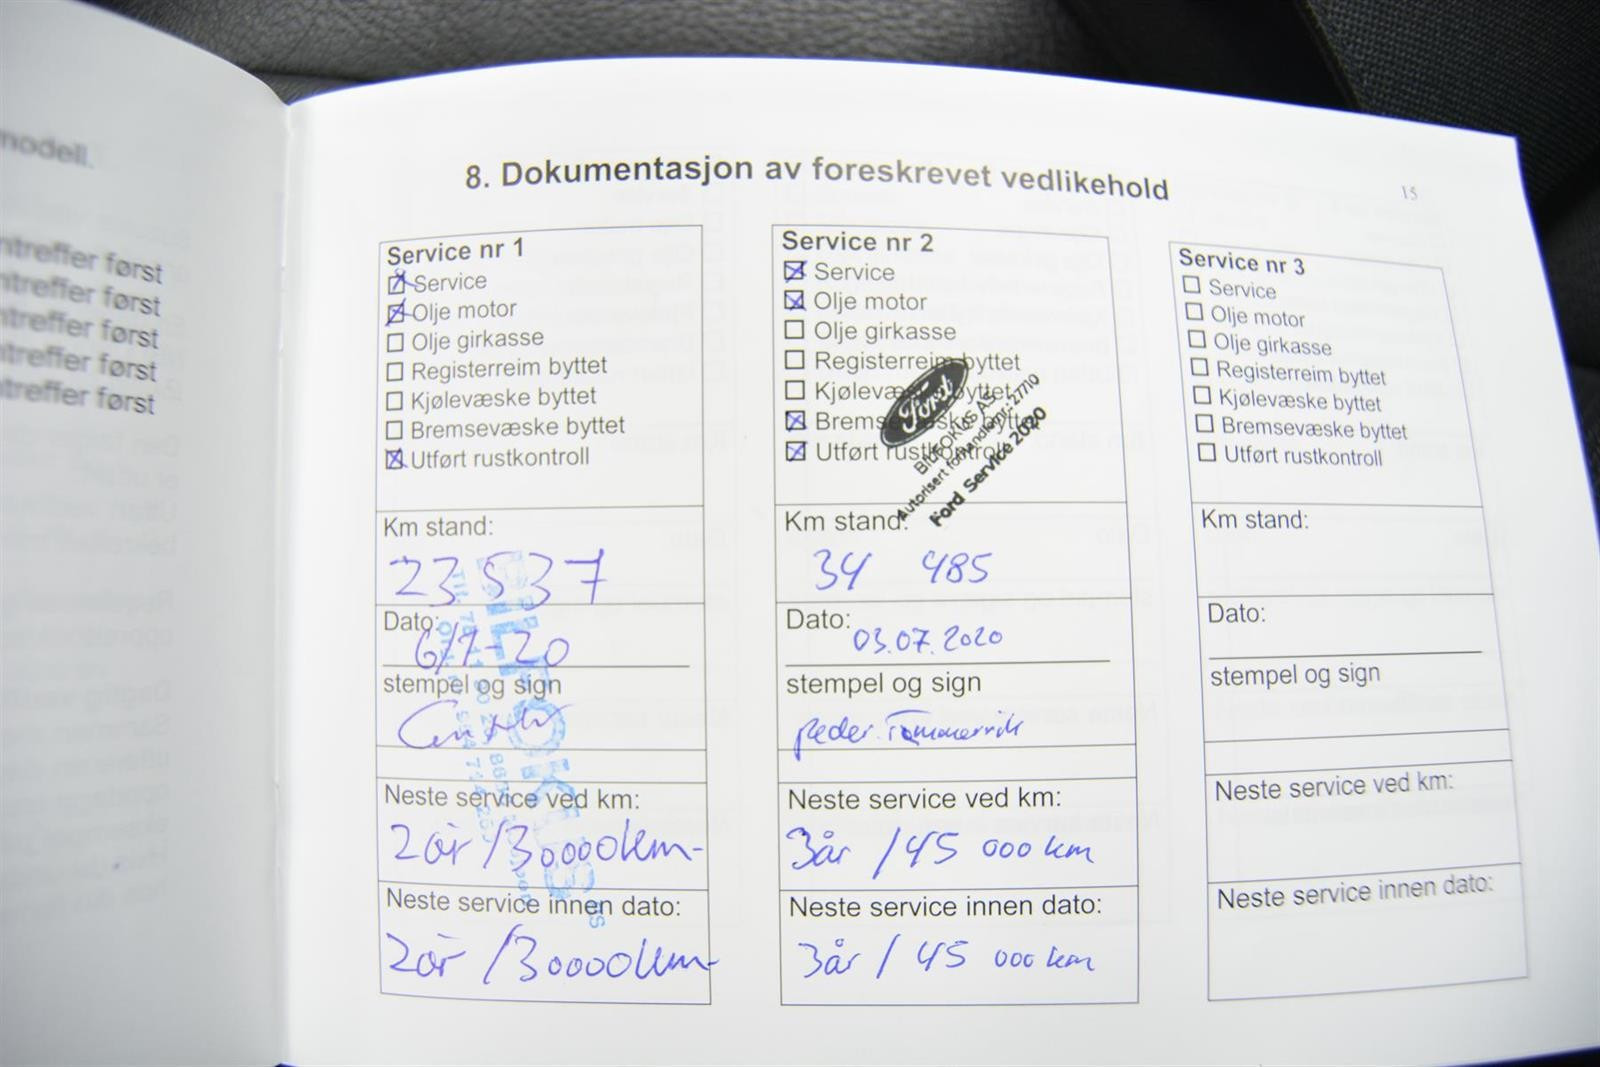 modell.
ntreffer først
ntreffer først
ntreffer først
ntreffer først
ntreffer først
8. Dokumentasjon av foreskrevet vedlikehold
15
Service nr 1
Service
Olje motor
Olje girkasse
Registerreim byttet
Kjølevæske byttet
Bremsevæske byttet
Utført rustkontroll
Km stand:
23 537
Dato:
6/7-20
stempel og sign
BILFOKUS AS
Neste service ved km:
2år /30000km-
Neste service innen dato:
2år /30000km-
Service nr 2
Service
Olje motor
Olje girkasse
Registerreim byttet
Kjølevæske byttet
Bremsevæske byttet
Utført rustkontroll
Ford
BILFOKUS AS
Autorisert forhandlernr.: 27710
Ford Service 2020
Km stand:
34 485
Dato:
03.07.2020
stempel og sign
Peder Tømmervik
Neste service ved km:
3år /45 000 km
Neste service innen dato:
3år / 45 000 km
Service nr 3
Service
Olje motor
Olje girkasse
Registerreim byttet
Kjølevæske byttet
Bremsevæske byttet
Utført rustkontroll
Km stand:
Dato:
stempel og sign
Neste service ved km:
Neste service innen dato: